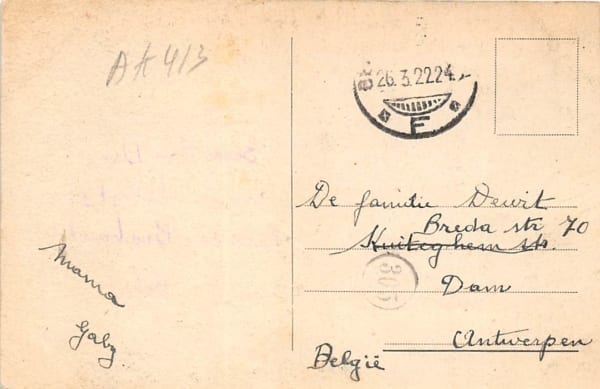 A H 4/3
26.3.22 24
F
De familie Dewit
Breda str 70
Kuiteghem str.
365
Dam
Antwerpen
België
Mama
Gaby